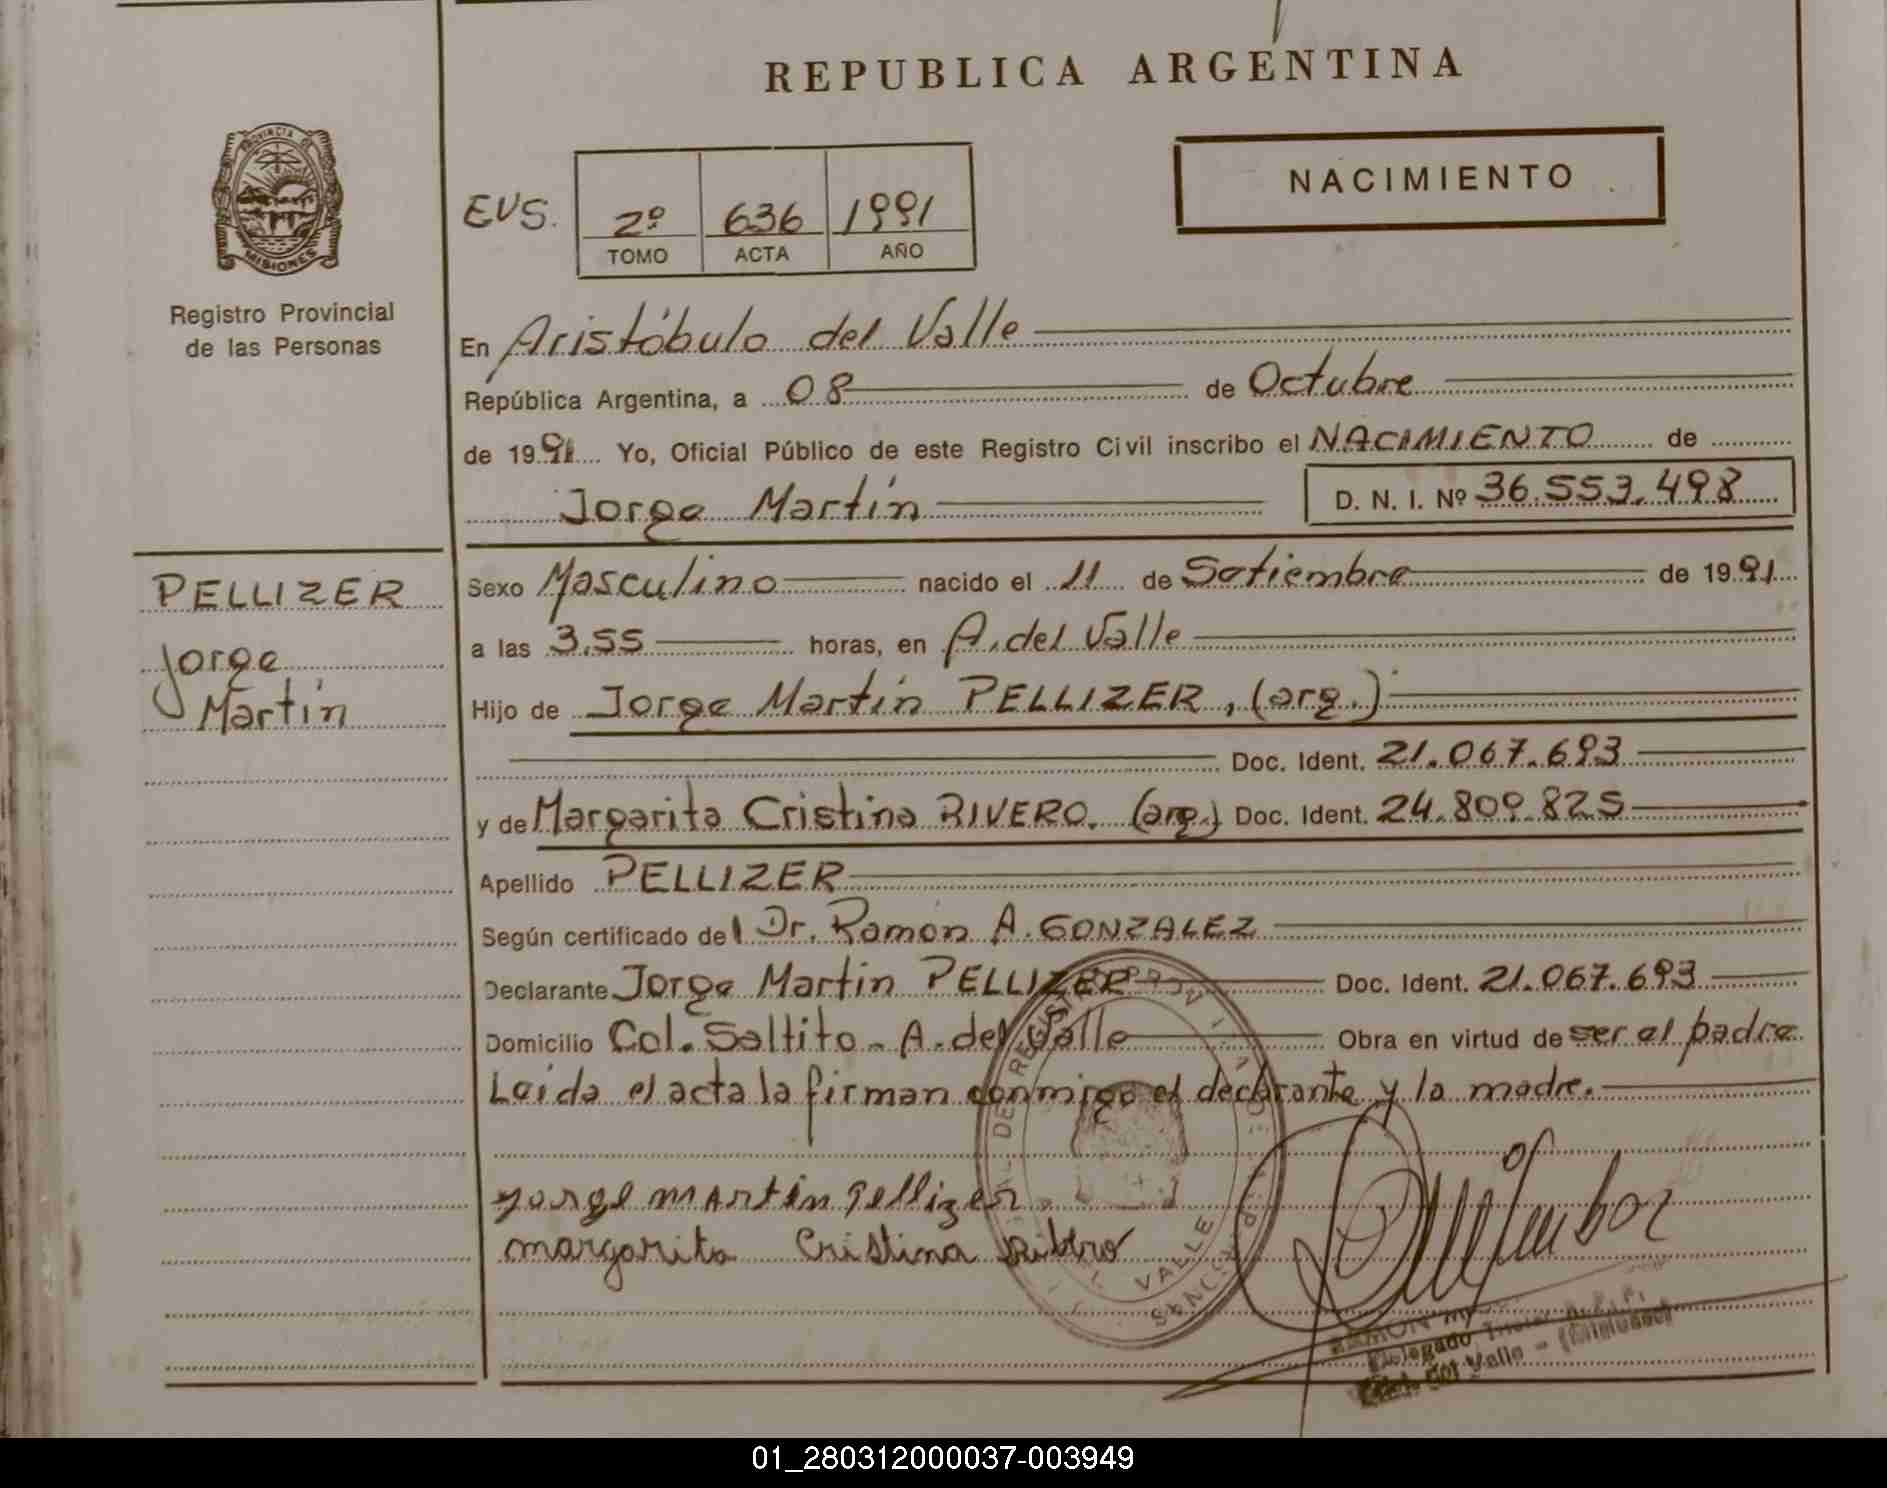 REPUBLICA ARGENTINA
NACIMIENTO
PROVINCIA DE
MISIONES
Registro Provincial
de las Personas
EVS. 2º 636 1991
TOMO ACTA AÑO
En Aristóbulo del Valle
República Argentina, a 08 de Octubre
de 1991 Yo, Oficial Público de este Registro Civil inscribo el NACIMIENTO de
Jorge Martín D. N. I. Nº 36.553.498
PELLIZER
Jorge
Martín
Sexo Masculino nacido el 11 de Setiembre de 1991
a las 3.55 horas, en A. del Valle
Hijo de Jorge Martín PELLIZER, (arg.)
Doc. Ident. 21.067.693
y de Margarita Cristina RIVERO. (arg.) Doc. Ident. 24.809.825
Apellido PELLIZER
Según certificado del Dr. Ramón A. GONZALEZ
Declarante Jorge Martín PELLIZER Doc. Ident. 21.067.693
Domicilio Col. Saltito - A. del Valle Obra en virtud de ser el padre
Leída el acta la firman conmigo el declarante y la madre.
Jorge Martín Pellizer
margarita Cristina Ribero
VALLE
MISIONES
RAMON
Delegado
del Valle - (Misiones)
01_280312000037-003949